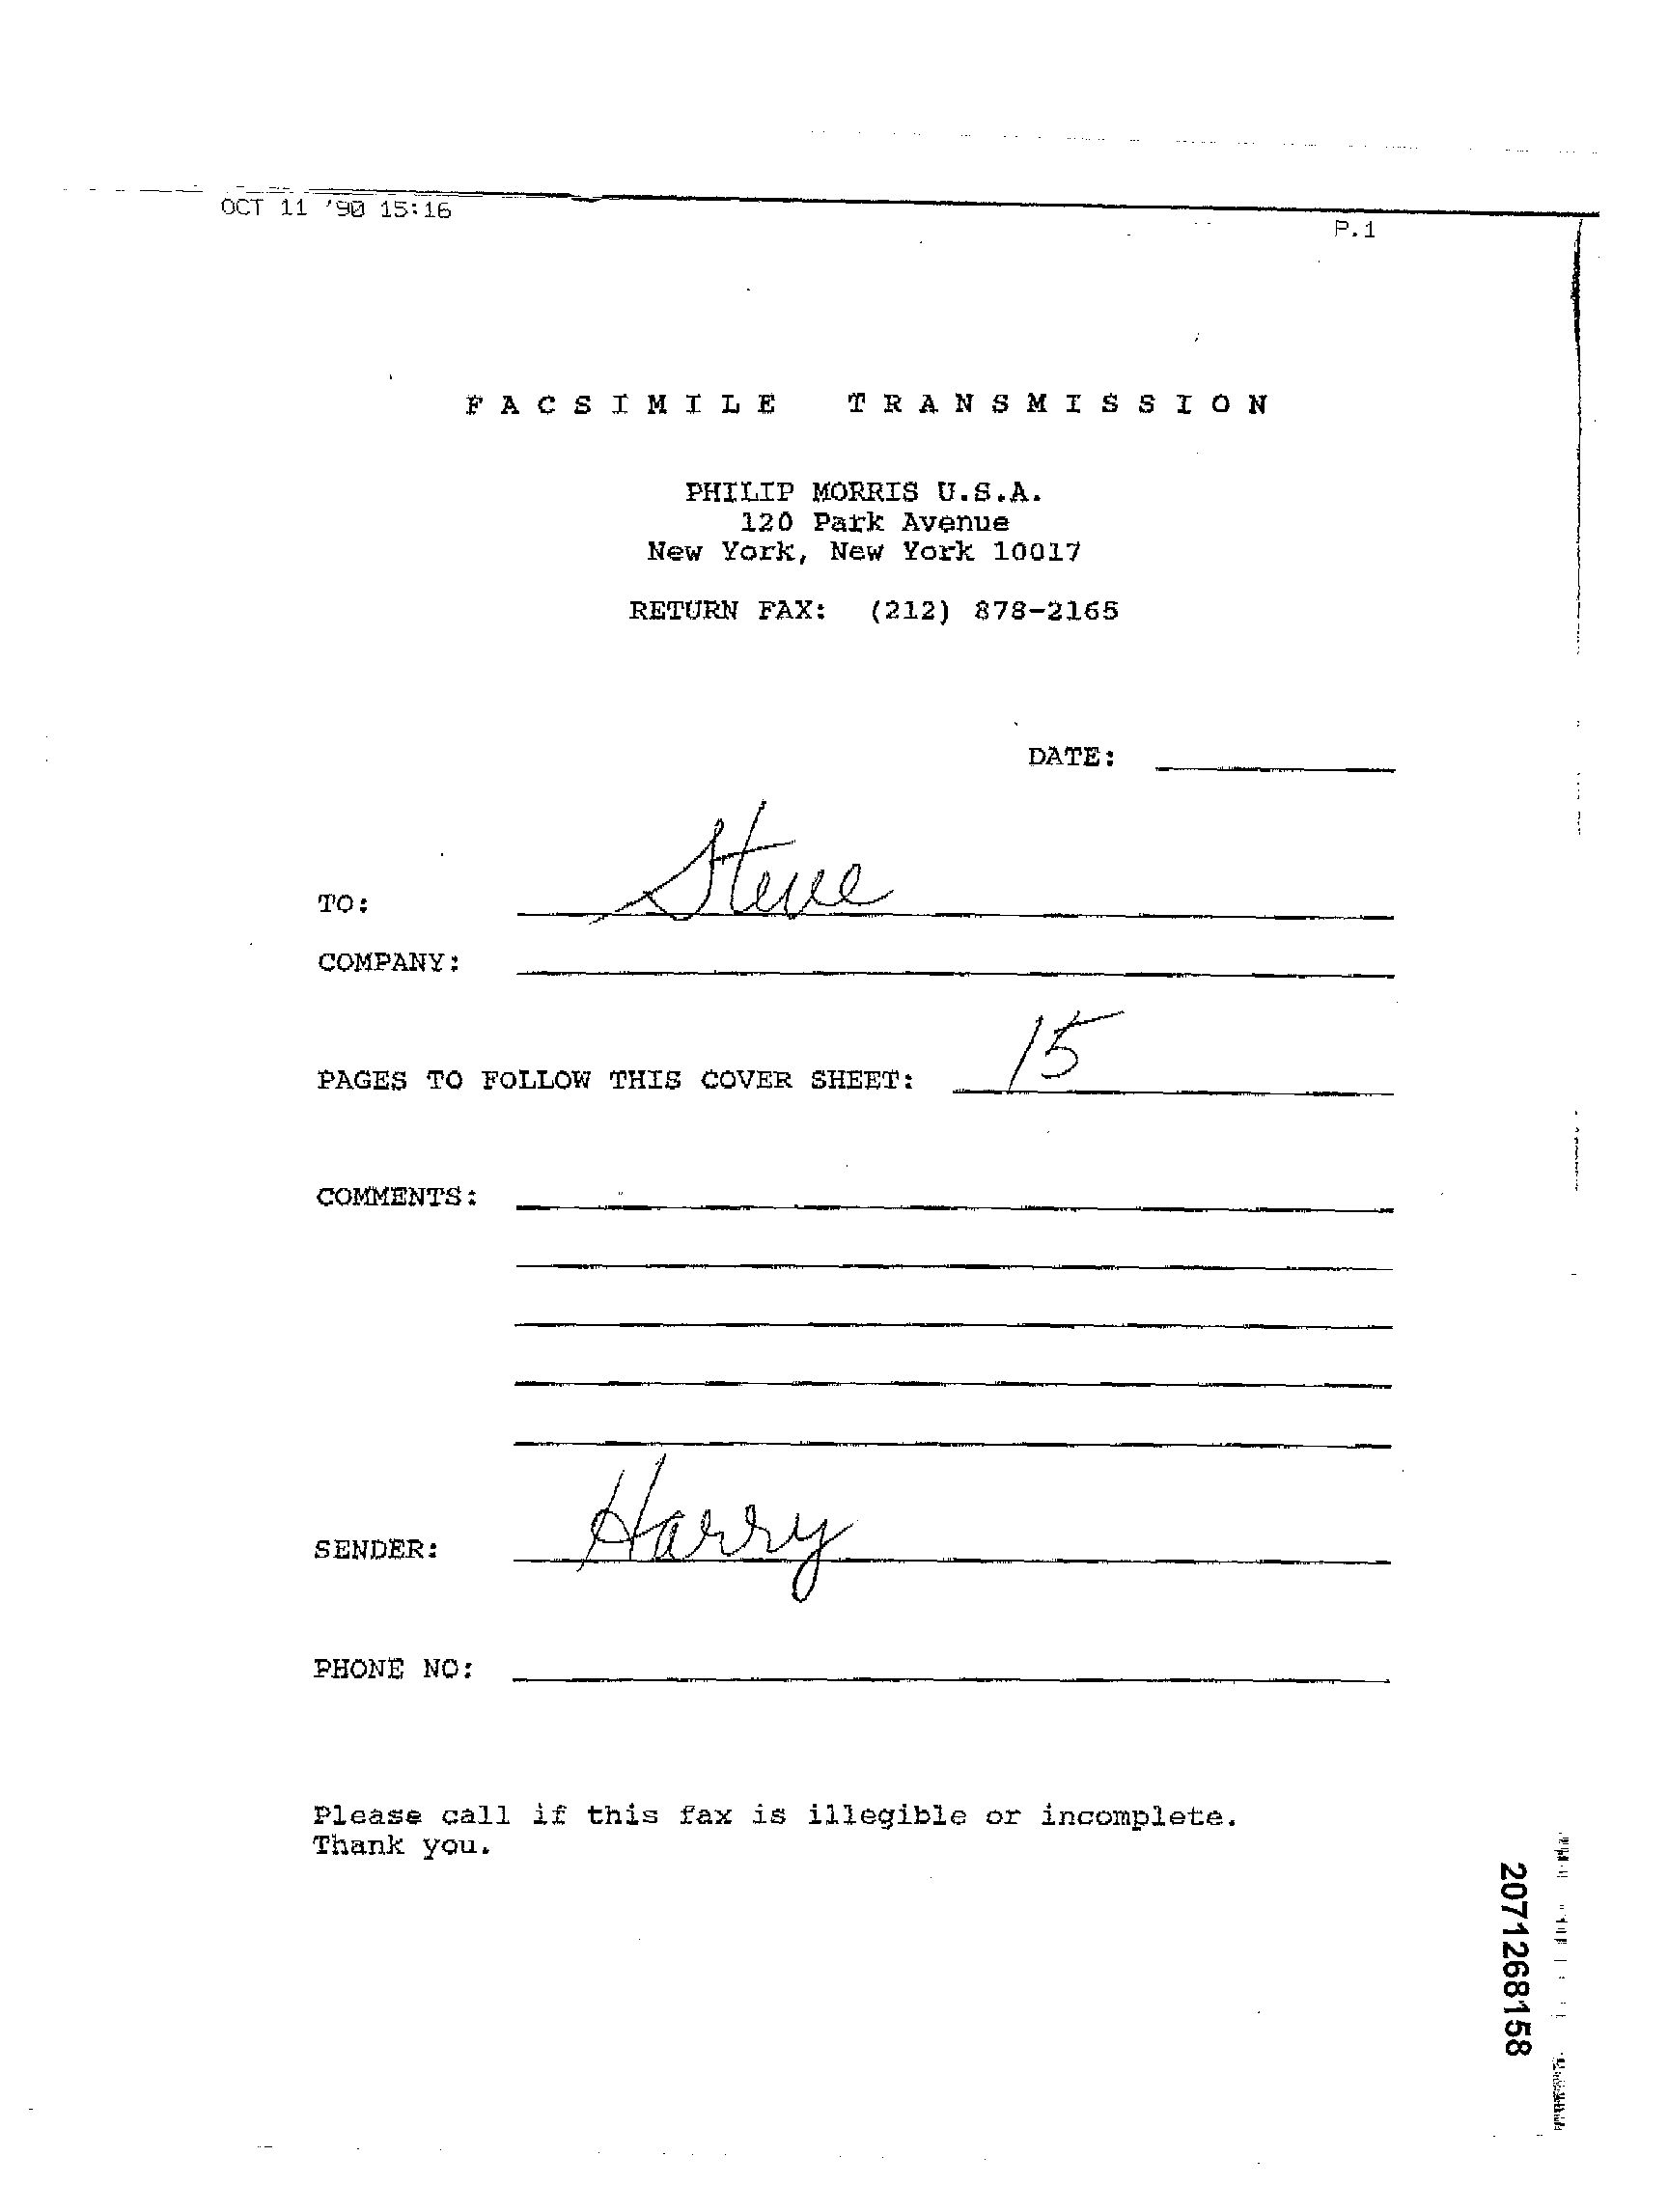 OCT 11 '90 15:16
P.1
FACSIMILE TRANSMISSION
PHILIP MORRIS U.S.A.
120 Park Avenue
New York, New York 10017
RETURN FAX: (212) 878-2165
DATE:
TO: Steve
COMPANY:
PAGES TO FOLLOW THIS COVER SHEET: 15
COMMENTS:
SENDER: Harry
PHONE NO:
Please call if this fax is illegible or incomplete.
Thank you.
2071268158